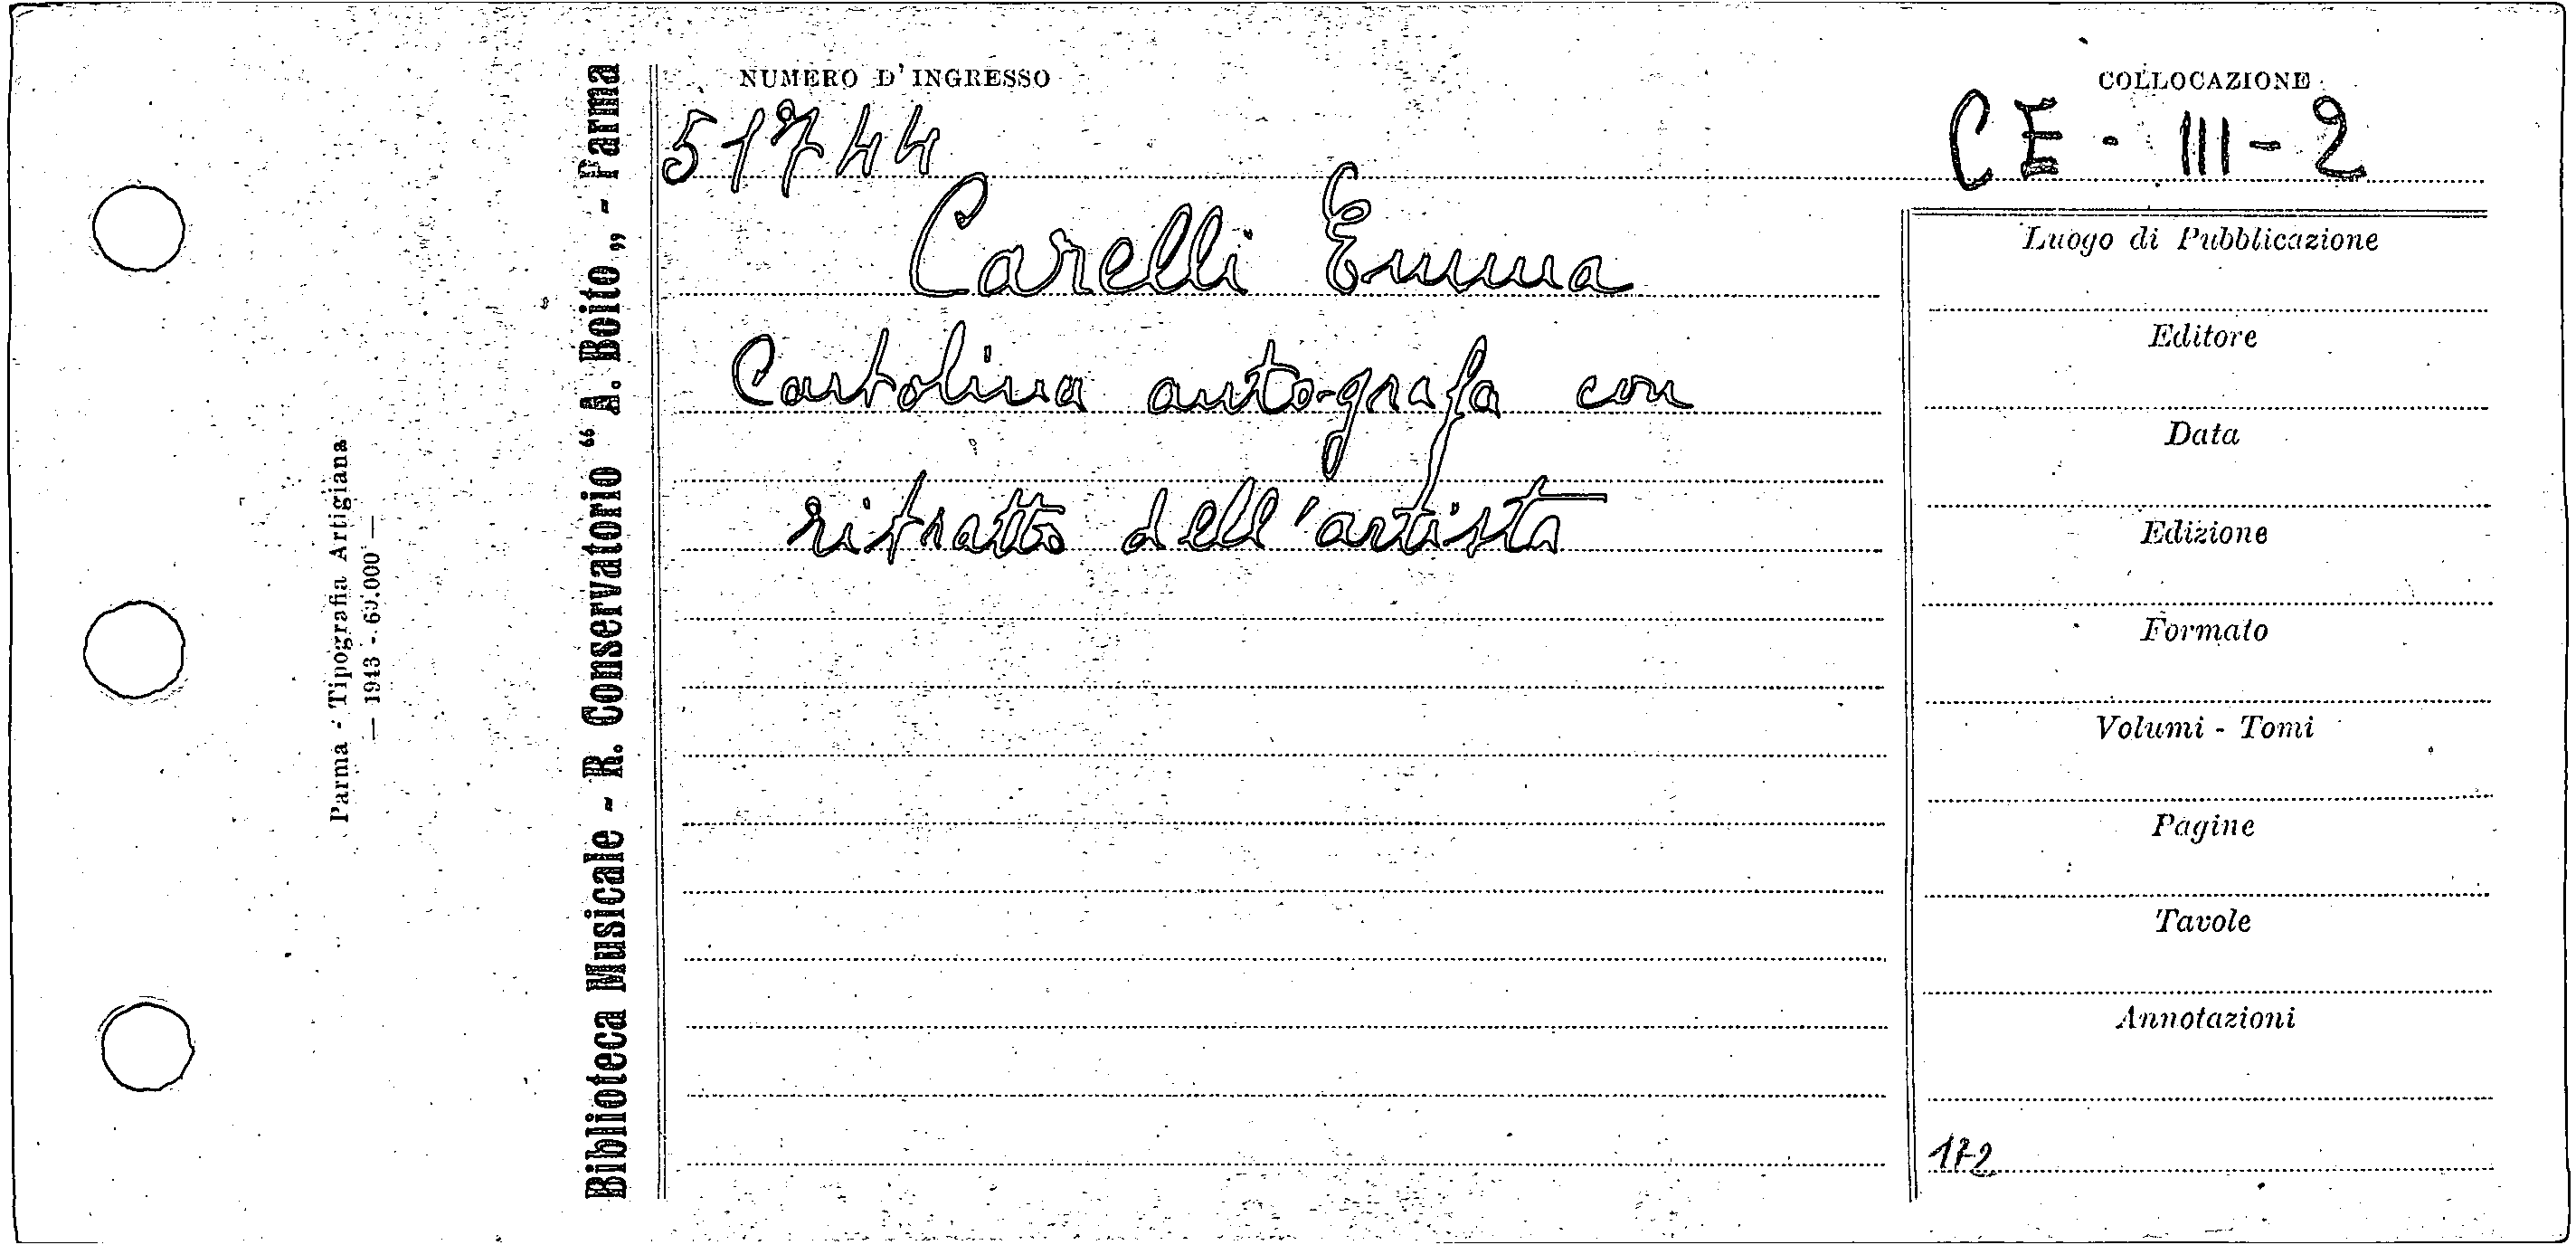 Parma - Tipografia Artigiana
— 1943 - 60.000 —
Biblioteca Musicale - R. Conservatorio “ A. Boito „ - Parma
NUMERO D'INGRESSO
51744
COLLOCAZIONE
CE - III - 2
Carelli Emma
Cartolina autografa con
ritratto dell'artista
Luogo di Pubblicazione
Editore
Data
Edizione
Formato
Volumi - Tomi
Pagine
Tavole
Annotazioni
172